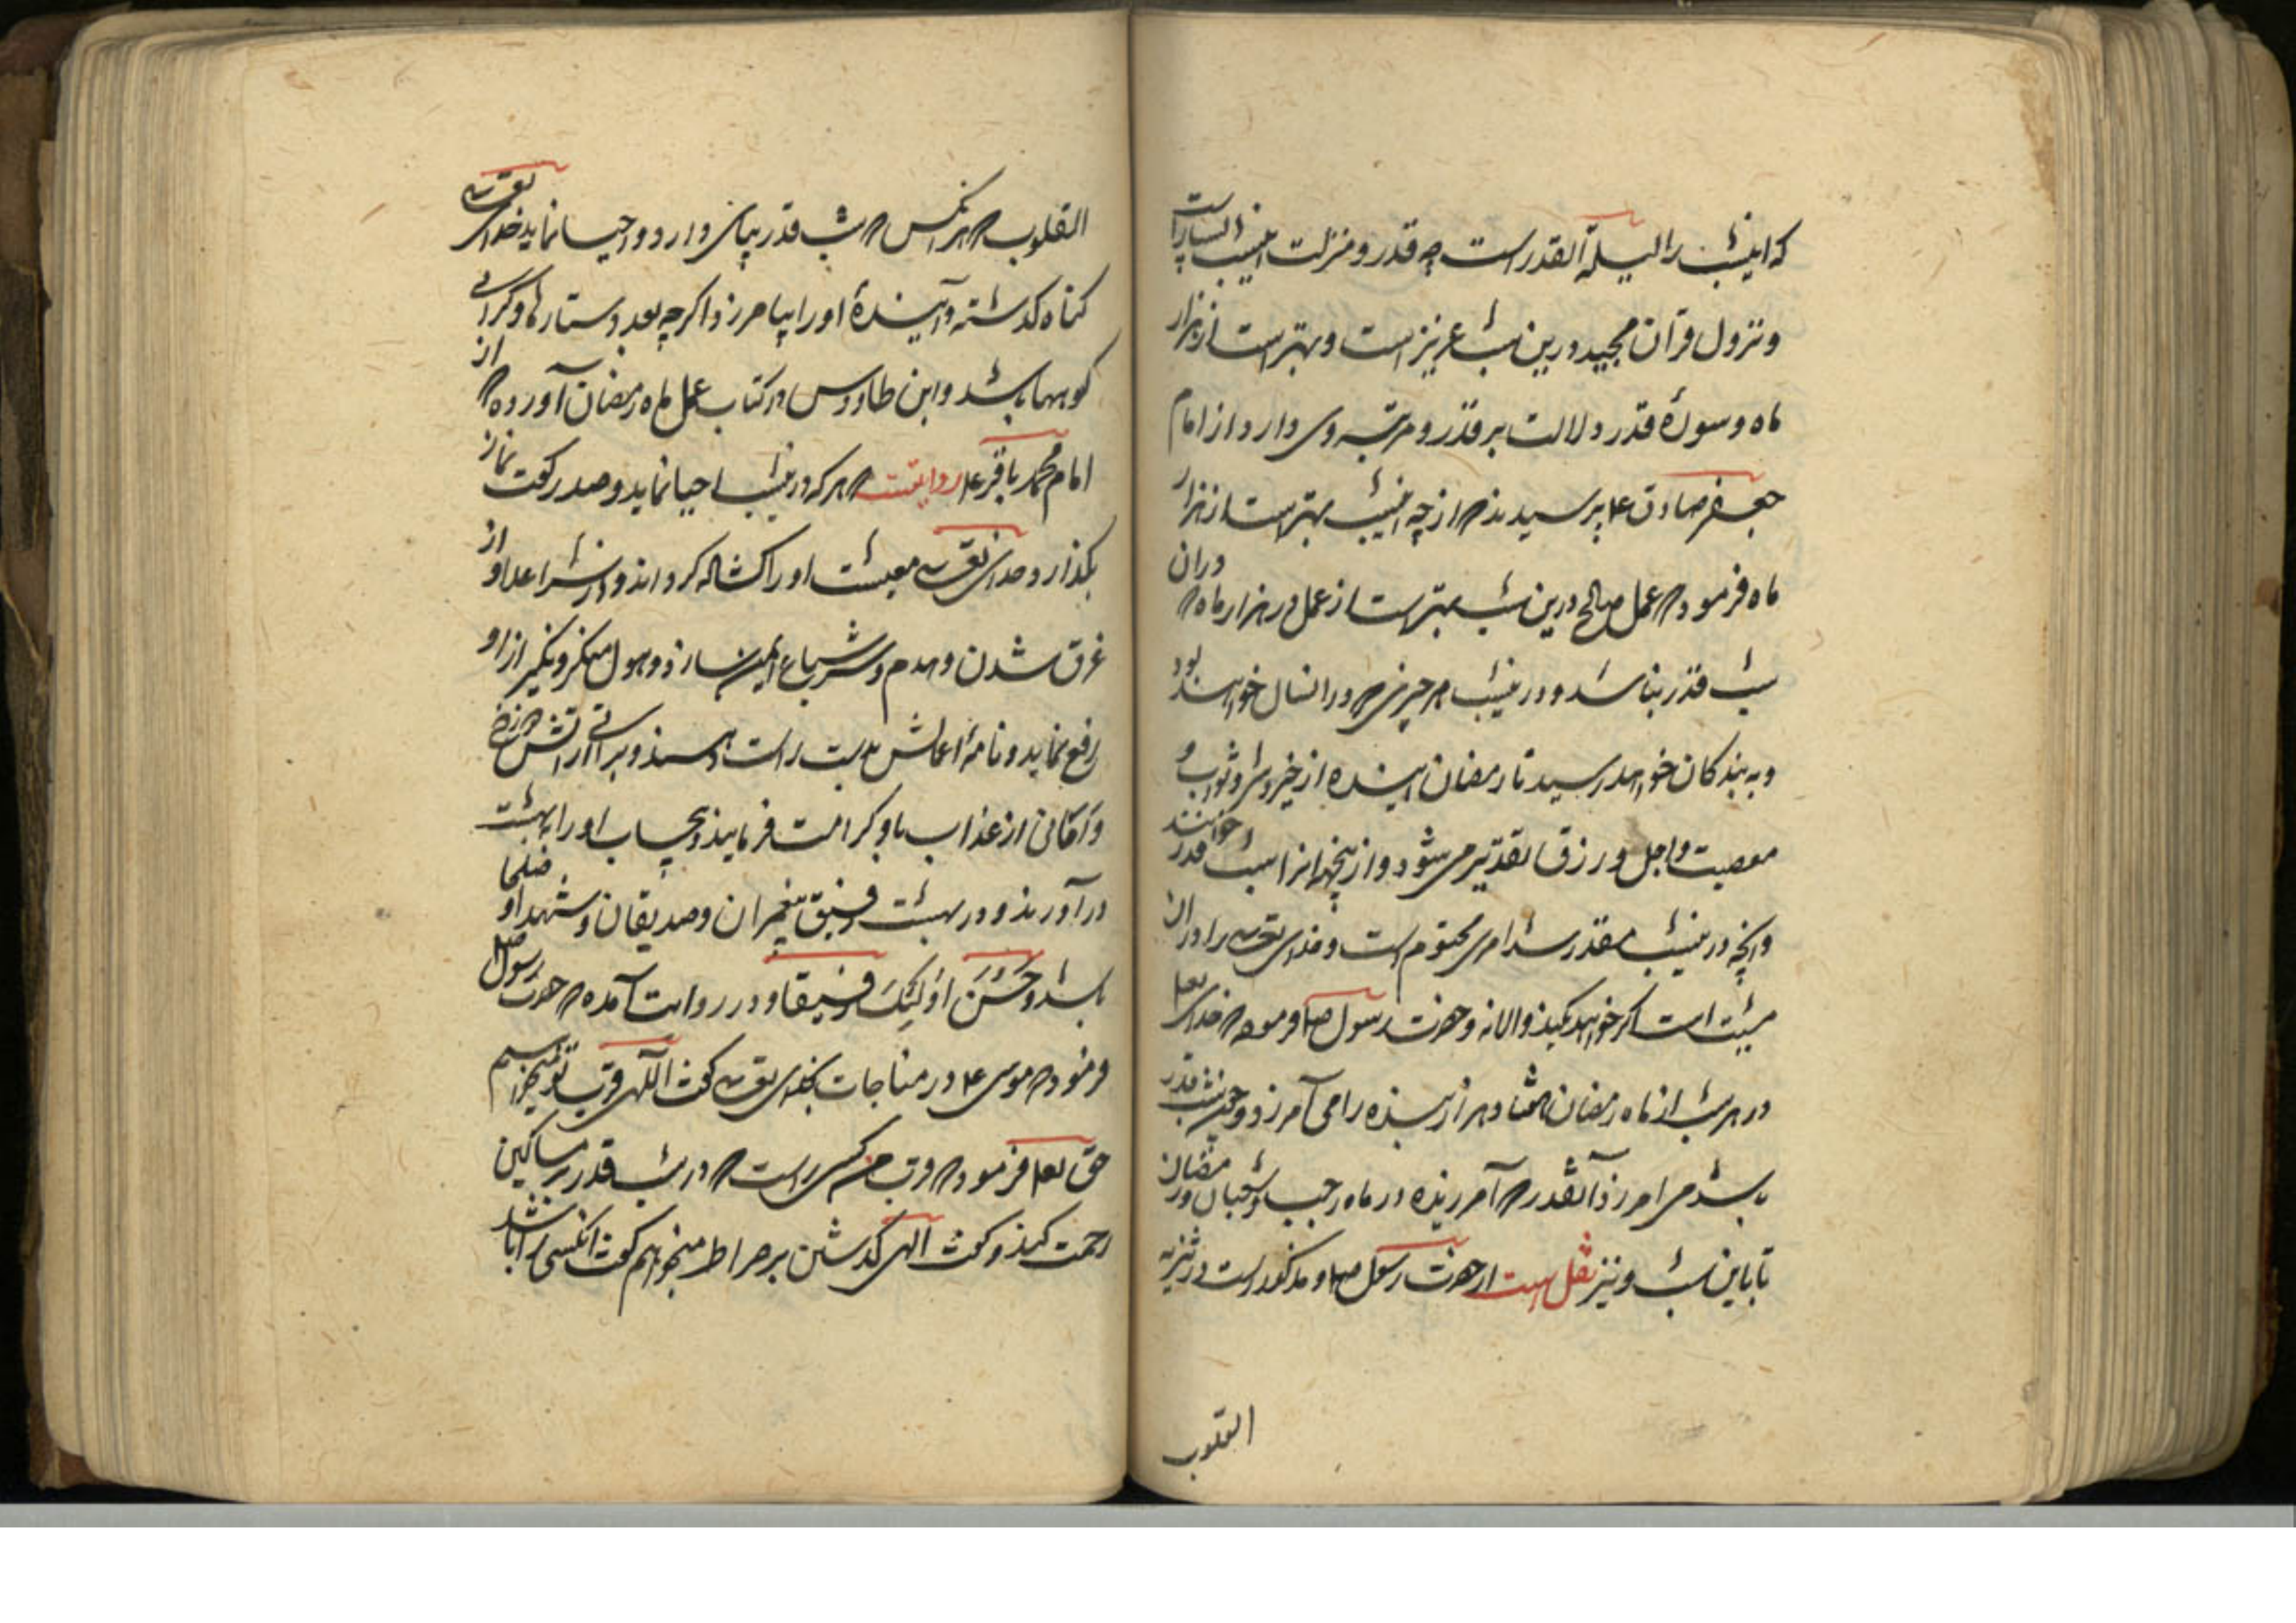 که اینشب را لیلة القدر است چه قدر و منزلت اینشب را بسیار است
و نزول قرآن مجید درین شب عزیز است و بهتر است از هزار
ماه و سورهٔ قدر دلالت بر قدر و مرتبه وی دارد از امام
جعفر صادق ع پرسیدند که از چه اینشب بهتر است از هزار
ماه فرمود که عمل صالح درین شب بهتر است از عمل در هزار ماه که دران
شب قدر نباشد و درینشب هر چیزی که در انسال خواهد بود
و به بندکان خواهد رسید تا رمضان آینده از خیر و شر و ثواب و
معصیت و اجل و رزق تقدیر می شود و از ینجهة انرا شب قدر خوانند
و انچه درینشب مقدر شد امری محتوم است و خدای تعالی را دران
مشیت است اکر خواهد کند و الا نه و حضرت رسول صلعم فرموده که خدای تعالی
در هر شب از ماه رمضان هشتاد هزار بنده را می آمرزد و چون شب قدر
باشد می امرزد آنقدر که آمرزیده در ماه رجب و شعبان و رمضان
تا باین شب و نیز نقل است از حضرت رسول صلعم و مذکور است در تنزیه
القلوب
القلوب که هر انکس که شب قدر بپای دارد و احیا نماید خدای تعالی
کناه کذشته و آیندهٔ او را بیامرزد اکرچه بعدد ستارها و کرانی
کوهها باشد و ابن طاووس در کتاب عمل ماه رمضان آورده که از
امام محمد باقر ع روایتست که هر که درینشب احیا نماید و صد رکعت نماز
بکذارد خدای تعالی معیشت او را کشاده کرداند و از شر اعدا و از
غرق شدن و هدم و شر سباع ایمن سازد و هول منکر و نکیر از او
رفع نماید و نامهٔ اعمالش بدست راست دهند و براتی از اتش دوزخ
و امانی از عذاب باو کرامت فرمایند و بیحساب او را ببهشت
در آورند و در بهشت رفیق پیغمبران و صدیقان و شهدا و صلحا
باشد وَحَسُنَ اُولَئِکَ رفیقا و در روایت آمده که حضرت رسول صلعم
فرمود که موسی ع در مناجات بخدای تعالی کفت الٓهی قرب تو میخواهم
حق تعالی فرمود که قرب من کسی راست که در شب قدر بر مساکین
رحمت کند و کفت الهی کذشتن بر صراط میخواهم کفت انکسی را باشد